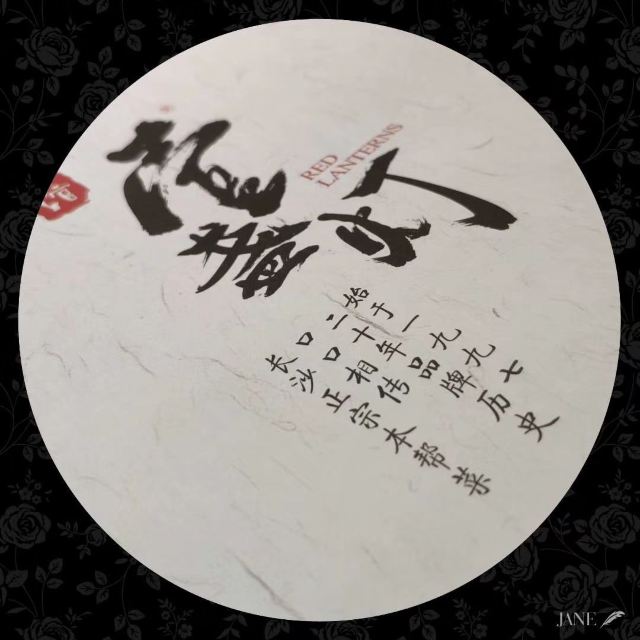 壹盏灯
RED
LANTERNS
始于一九九七
二十年品牌历史
口口相传
长沙正宗本帮菜
JANE